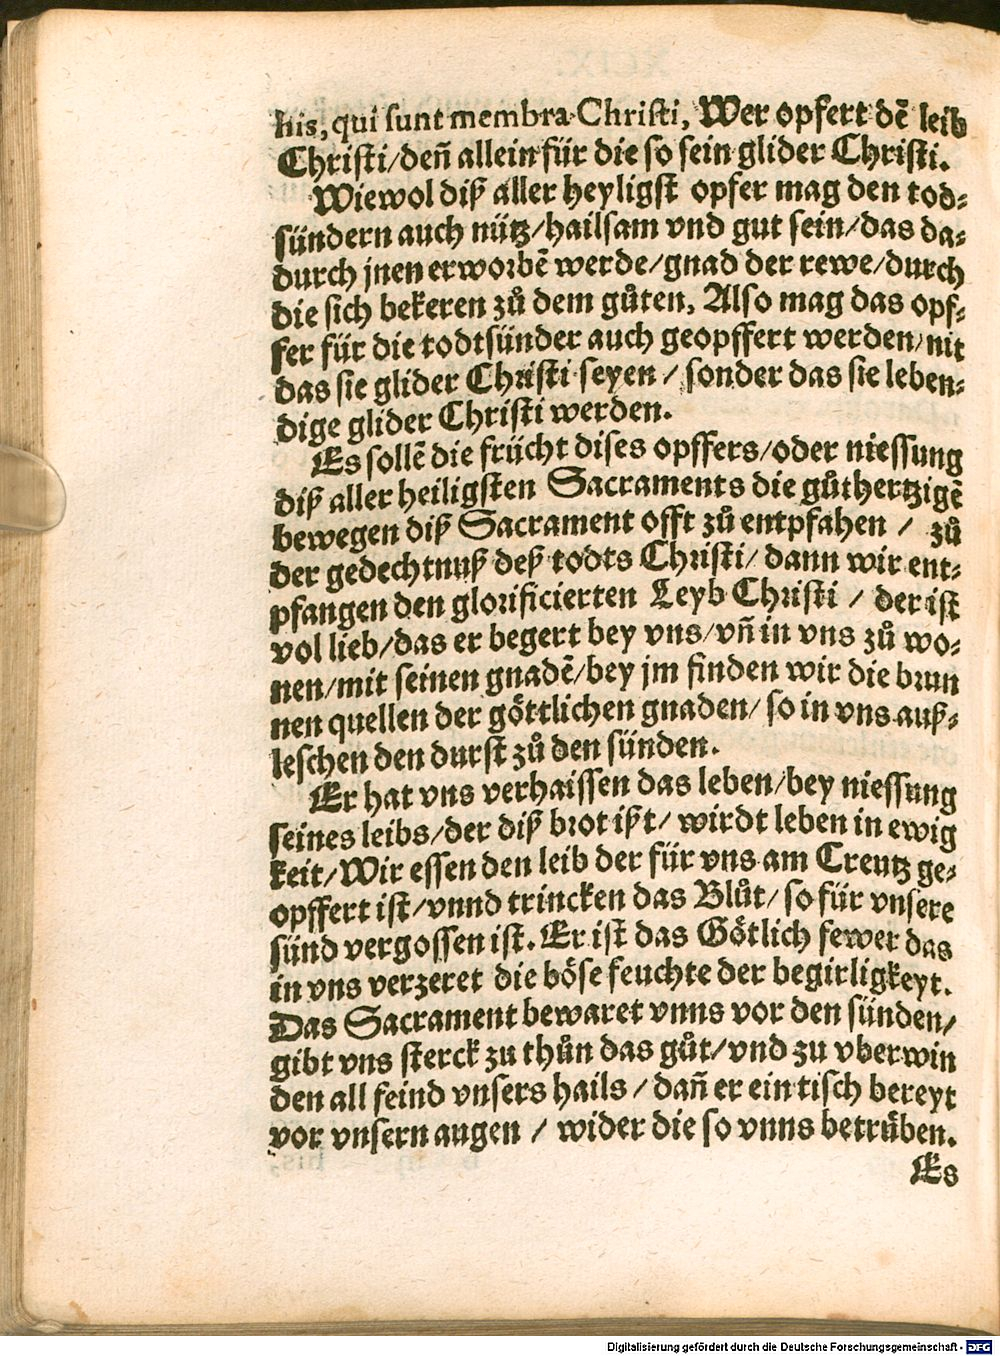 his, qui sunt membra Christi, Wer opfert dē leib
Christi/deñ allein für die so sein glider Christi.
Wiewol diß aller heyligst opfer mag den tod⸗
sündern auch nütz/hailsam vnd gut sein/das da⸗
durch jnen erworbē werde/gnad der rewe/durch
die sich bekeren zů dem gůten, Also mag das opf⸗
fer für die todtsünder auch geopffert werden/nit
das sie glider Christi seyen / sonder das sie leben⸗
dige glider Christi werden.
Es sollē die frücht dises opffers/oder niessung
diß aller heiligsten Sacraments die gůthertzigē
bewegen diß Sacrament offt zů entpfahen / zů
der gedechtnuß deß todts Christi/ dann wir ent⸗
pfangen den glorificierten Leyb Christi / der ist
vol lieb/das er begert bey vns/vñ in vns zů wo⸗
nen/mit seinen gnadē/bey jm finden wir die brun
nen quellen der göttlichen gnaden/ so in vns auß⸗
leschen den durst zů den sünden.
Er hat vns verhaissen das leben/bey niessung
seines leibs/der diß brot ißt/ wirdt leben in ewig
keit/Wir essen den leib der für vns am Creutz ge⸗
opffert ist/vnnd trincken das Blůt/ so für vnsere
sünd vergossen ist. Er ist das Götlich fewer das
in vns verzeret die böse feuchte der begirligkeyt.
Das Sacrament bewaret vnns vor den sünden/
gibt vns sterck zu thůn das gůt/vnd zu vberwin
den all feind vnsers hails / dañ er ein tisch bereyt
vor vnsern augen / wider die so vnns betrüben.
Es
Digitalisierung gefördert durch die Deutsche Forschungsgemeinschaft - DFG